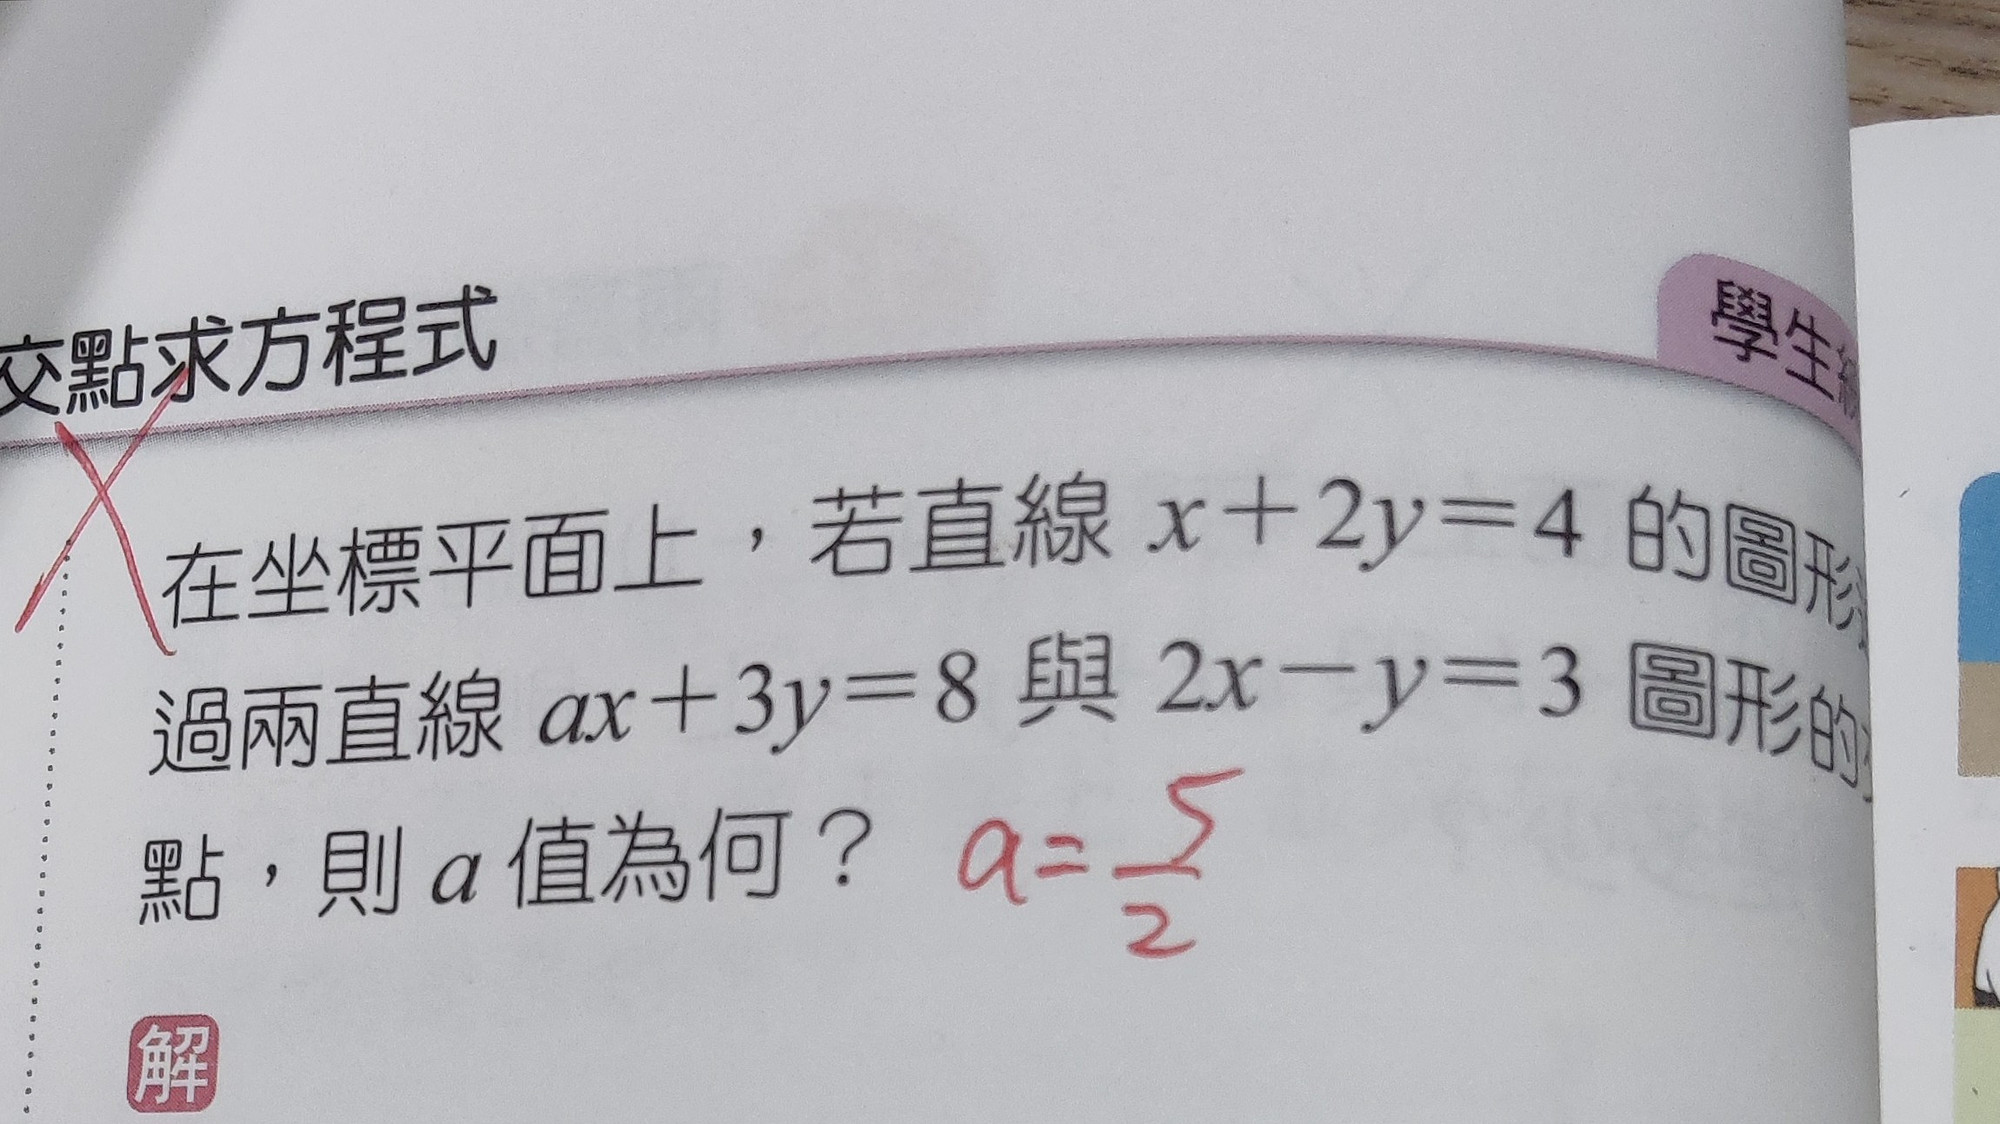 交點求方程式
學生
在坐標平面上，若直線 x＋2y＝4 的圖形
過兩直線 ax＋3y＝8 與 2x－y＝3 圖形的
點，則 a 值為何？ a=5/2
解